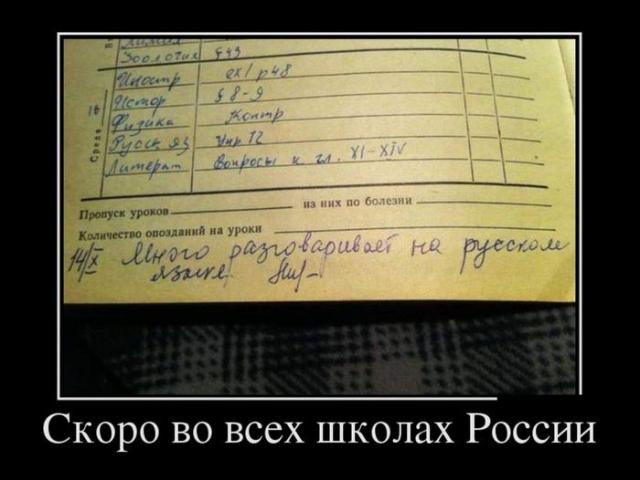 Химия
Зоология §43
Иностр ex1 p48
16 Истор § 8-9
Среда
Физика Контр
Русск яз Упр 12
Литерат Вопросы к гл. XI-XIV
Пропуск уроков из них по болезни
Количество опозданий на уроки
14/X Много разговаривает на русском
языке.
Скоро во всех школах России